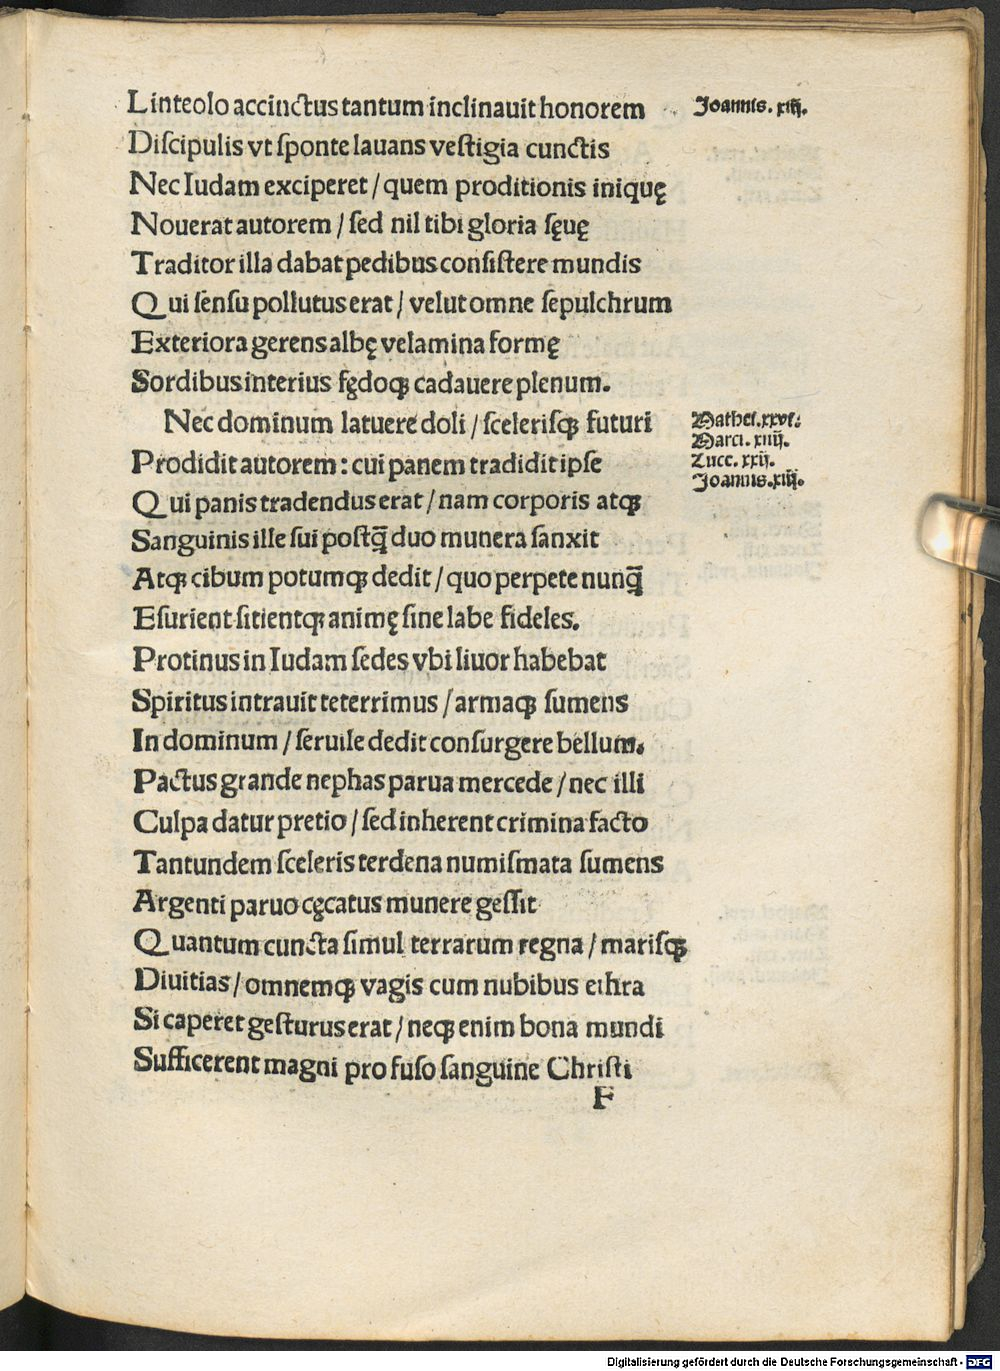 Linteolo accinctus tantum inclinauit honorem
Joannis. xiij.
Diſcipulis vt ſponte lauans veſtigia cunctis
Nec Iudam exciperet / quem proditionis iniquę
Nouerat autorem / ſed nil tibi gloria ſęuę
Traditor illa dabat pedibus conſiſtere mundis
Qui ſenſu pollutus erat / velut omne ſepulchrum
Exteriora gerens albę velamina formę
Sordibus interius fędoqꝫ cadauere plenum.
Nec dominum latuere doli / ſceleriſqꝫ futuri
Mathei. xxvi.
Prodidit autorem : cui panem tradidit ipſe
Marci. xiiij.
Luce. xxij.
Qui panis tradendus erat / nam corporis atqꝫ
Joannis. xiij.
Sanguinis ille ſui poſtq̃ duo munera ſanxit
Atqꝫ cibum potumqꝫ dedit / quo perpete nunq̃
Eſurient ſitientqꝫ animę ſine labe fideles.
Protinus in Iudam ſedes vbi liuor habebat
Spiritus intrauit teterrimus / armaqꝫ ſumens
In dominum / ſeruile dedit conſurgere bellum.
Pactus grande nephas parua mercede / nec illi
Culpa datur pretio / ſed inherent crimina facto
Tantundem ſceleris terdena numiſmata ſumens
Argenti paruo cęcatus munere geſſit
Quantum cuncta ſimul terrarum regna / mariſqꝫ
Diuitias / omnemqꝫ vagis cum nubibus ethra
Si caperet geſturus erat / neqꝫ enim bona mundi
Sufficerent magni pro fuſo ſanguine Chriſti
F
Digitalisierung gefördert durch die Deutsche Forschungsgemeinschaft - DFG